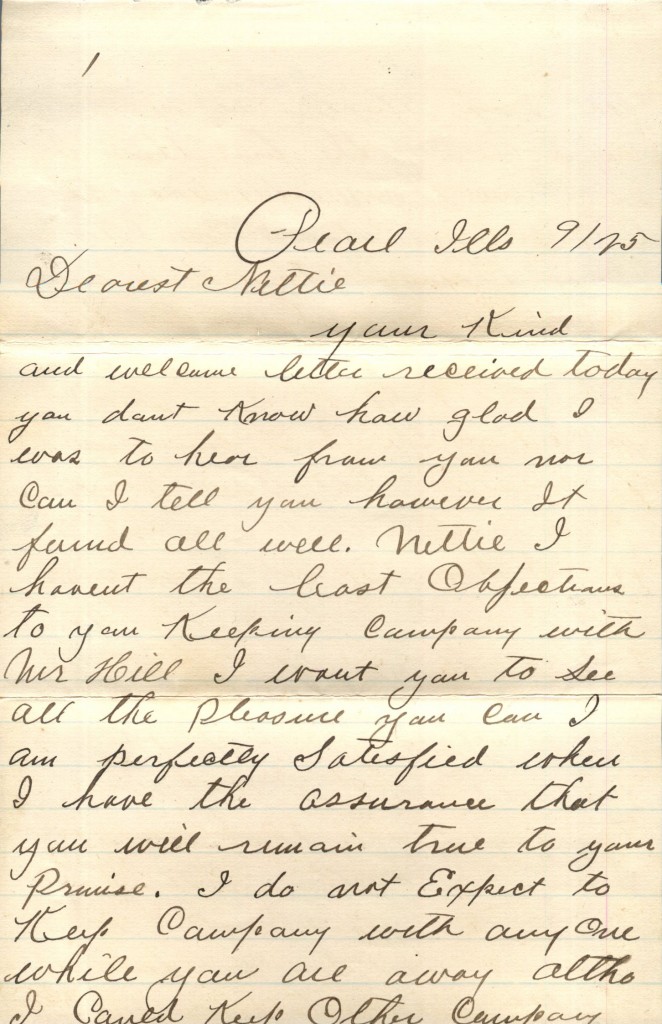 Pearl Ills 9/25
Dearest Nettie
your Kind
and welcome letter received today
you dont Know how glad I
was to hear from you nor
Can I tell you however It
found all well. Nettie I
havent the least Objections
to you Keeping Company with
Mr Hill I want you to See
all the pleasure you Can I
am perfectly Satesfied when
I have the assurance that
you will remain true to your
Promise. I do not Expect to
Keep Company with any One
while you are away altho
I Could Keep Other Company